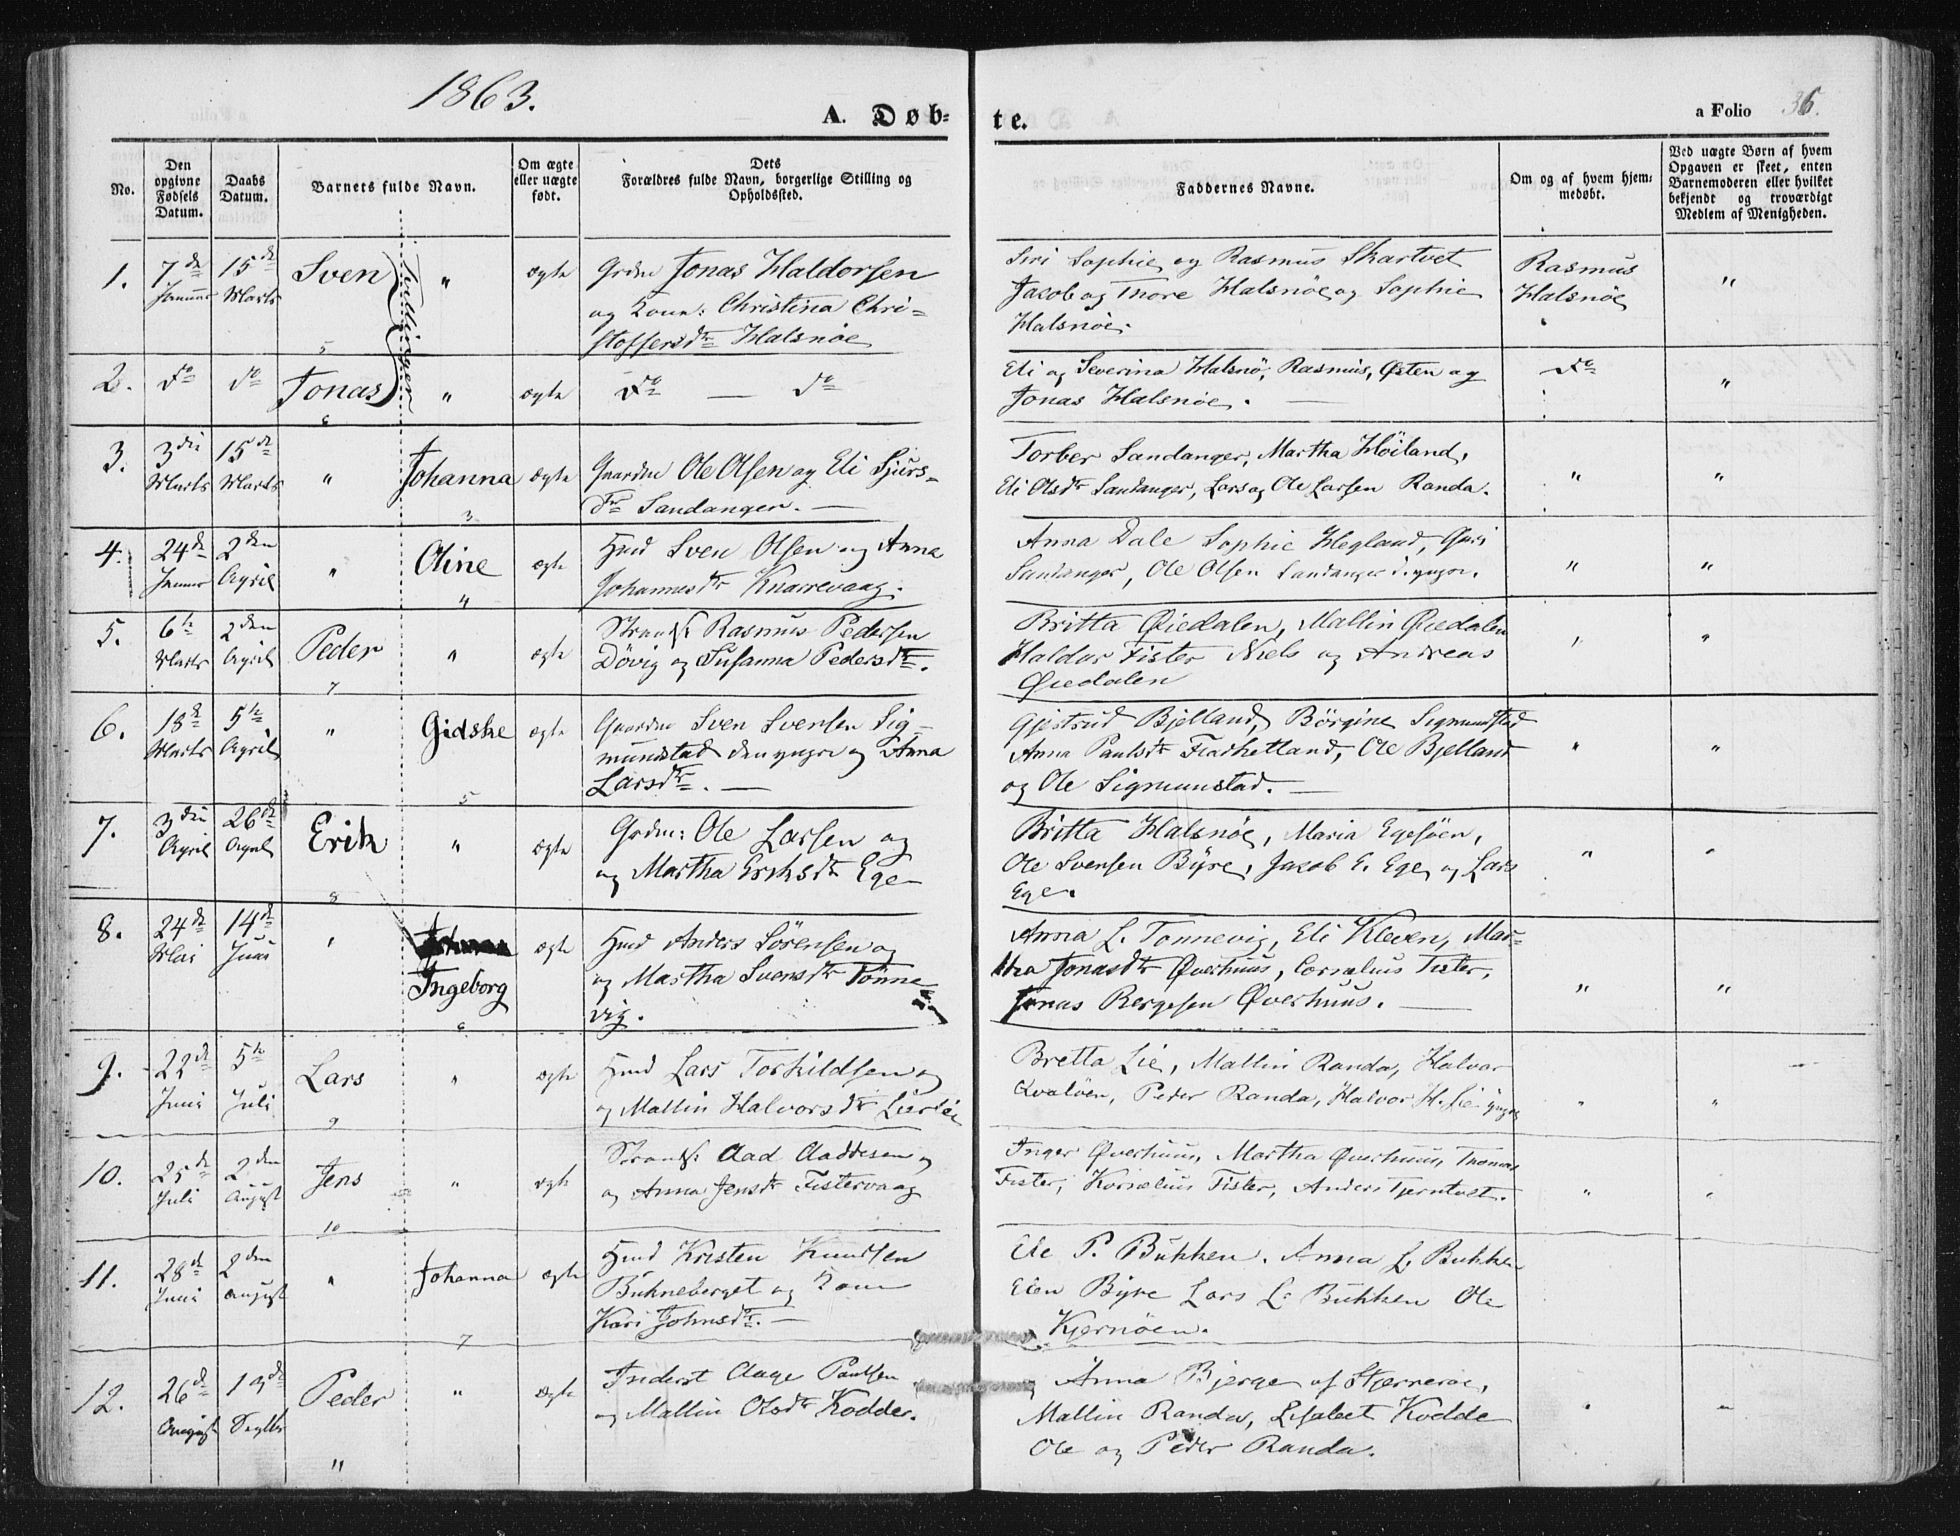 1863.
A. Døb-
te.
a Folio 36.
No.
Den opgivne Fødsels Datum.
Daabs Datum.
Barnets fulde Navn.
Om ægte eller uægte født.
Dets Forældres fulde Navn, borgerlige Stilling og Opholdssted.
Faddernes Navne.
Om og af hvem hjemmedøbt.
Ved uægte Børn af hvem Opgaven er skeet, enten Barnemoderen eller hvilket bekjendt og troværdigt Medlem af Menigheden.
1. 7de Januar 15de Marts Sven } Tvillinger " ægte
5
Grdm Jonas Haldorsen
og Kone: Christina Chri-
stoffersdtr Halsnøe
Siri Sophie og Rasmus Skartvet
Jacob og Thore Halsnøe og Sophie
Halsnøe.
Rasmus
Halsnøe
"
2. do do Jonas " ægte do — do
6
Eli og Severina Halsnø, Rasmus, Østen og
Jonas Halsnøe. —
do
"
3. 3die Marts 15de Marts " Johanna ægte
3
Gaardm Ole Olsen og Eli Sjurs-
Dr Sandanger. —
Torber Sandanger, Martha Höiland,
Eli Olsdtr Sandanger, Lars og Ole Larsen Randa.
" "
4. 24de Januar 2den April " Oline ægte
4
Hmd Sven Olsen og Anna
Johannesdtr Knarrevaag.
Anna Dale Sophie Hegland, Guri
Sandanger, Ole Olsen Sandanger d. yngre.
" "
5. 6te Marts 2den April Peder " ægte
7
Strands: Rasmus Pedersen
Døvig og Susanna Pedersdtr.
Britta Øiedalen, Mallin Øiedalen
Haldor Fister Niels og Andreas
Øiedalen
" "
6. 18de Marts 5te April " Gidske ægte
5
Gaardm Sven Svensen Sig-
mundstad den yngre og Anna
Larsdtr. —
Gjertrud Bjelland, Börgine Sigmundstad
Anna Paulsdtr Fladhetland, Ole Bjelland
og Ole Sigmunstad. —
" "
7. 3die April 26de April Erik " ægte
8
Grdm: Ole Larsen og
og Martha Eriksdtr Ege
Britta Halsnöe, Maria Egesöen,
Ole Svensen Byre, Jacob E. Ege og Lars
Ege.
" "
8. 24de Mai 14de Juni " Ingeborg ægte
6
Hmd Anders Sörensen og
og Martha Svensdtr Tönne-
vig.
Anna L. Tonnevig, Eli Kleven, Mar-
tha Jonasdtr Øverhuus, Cornelius Fister,
Jonas Bergesen Øverhuus. —
" "
9. 22de Juni 5te Juli Lars " ægte
9
Hmd Lars Torkildsen og
og Mallin Halvorsdtr
Bretta Lie, Mallin Randa, Halvor
Kvalöen, Peder Randa, Halvor H. Lie yngre
" "
10. 25de Juli 2den August Jens " ægte
10
Strands: Aad Aaddesen og
og Anna Jensdtr Fistervaag
Inger Øverhuus, Martha Øverhuus, Thomas
Fister, Kornelius Fister, Anders Tjerntvet.
" "
11. 28de Juni 2den August " Johanna ægte
7
Hmd Kristen Knudsen
Bukneberget og Kone
Kari Johnsdtr. —
Ole P. Bukken. Anna L. Bukken
Elen Byre Lars L. Bukken Ole
Kjernöen.
12. 26de August 13de Septbr Peder " ægte
11
Inderst Aage Paulsen
og Mallin Olsdtr Kodder.
Anna Bjerge af Stjerneröe,
Mallin Randa, Lisabet Kodde
Ole og Peder Randa.
" "